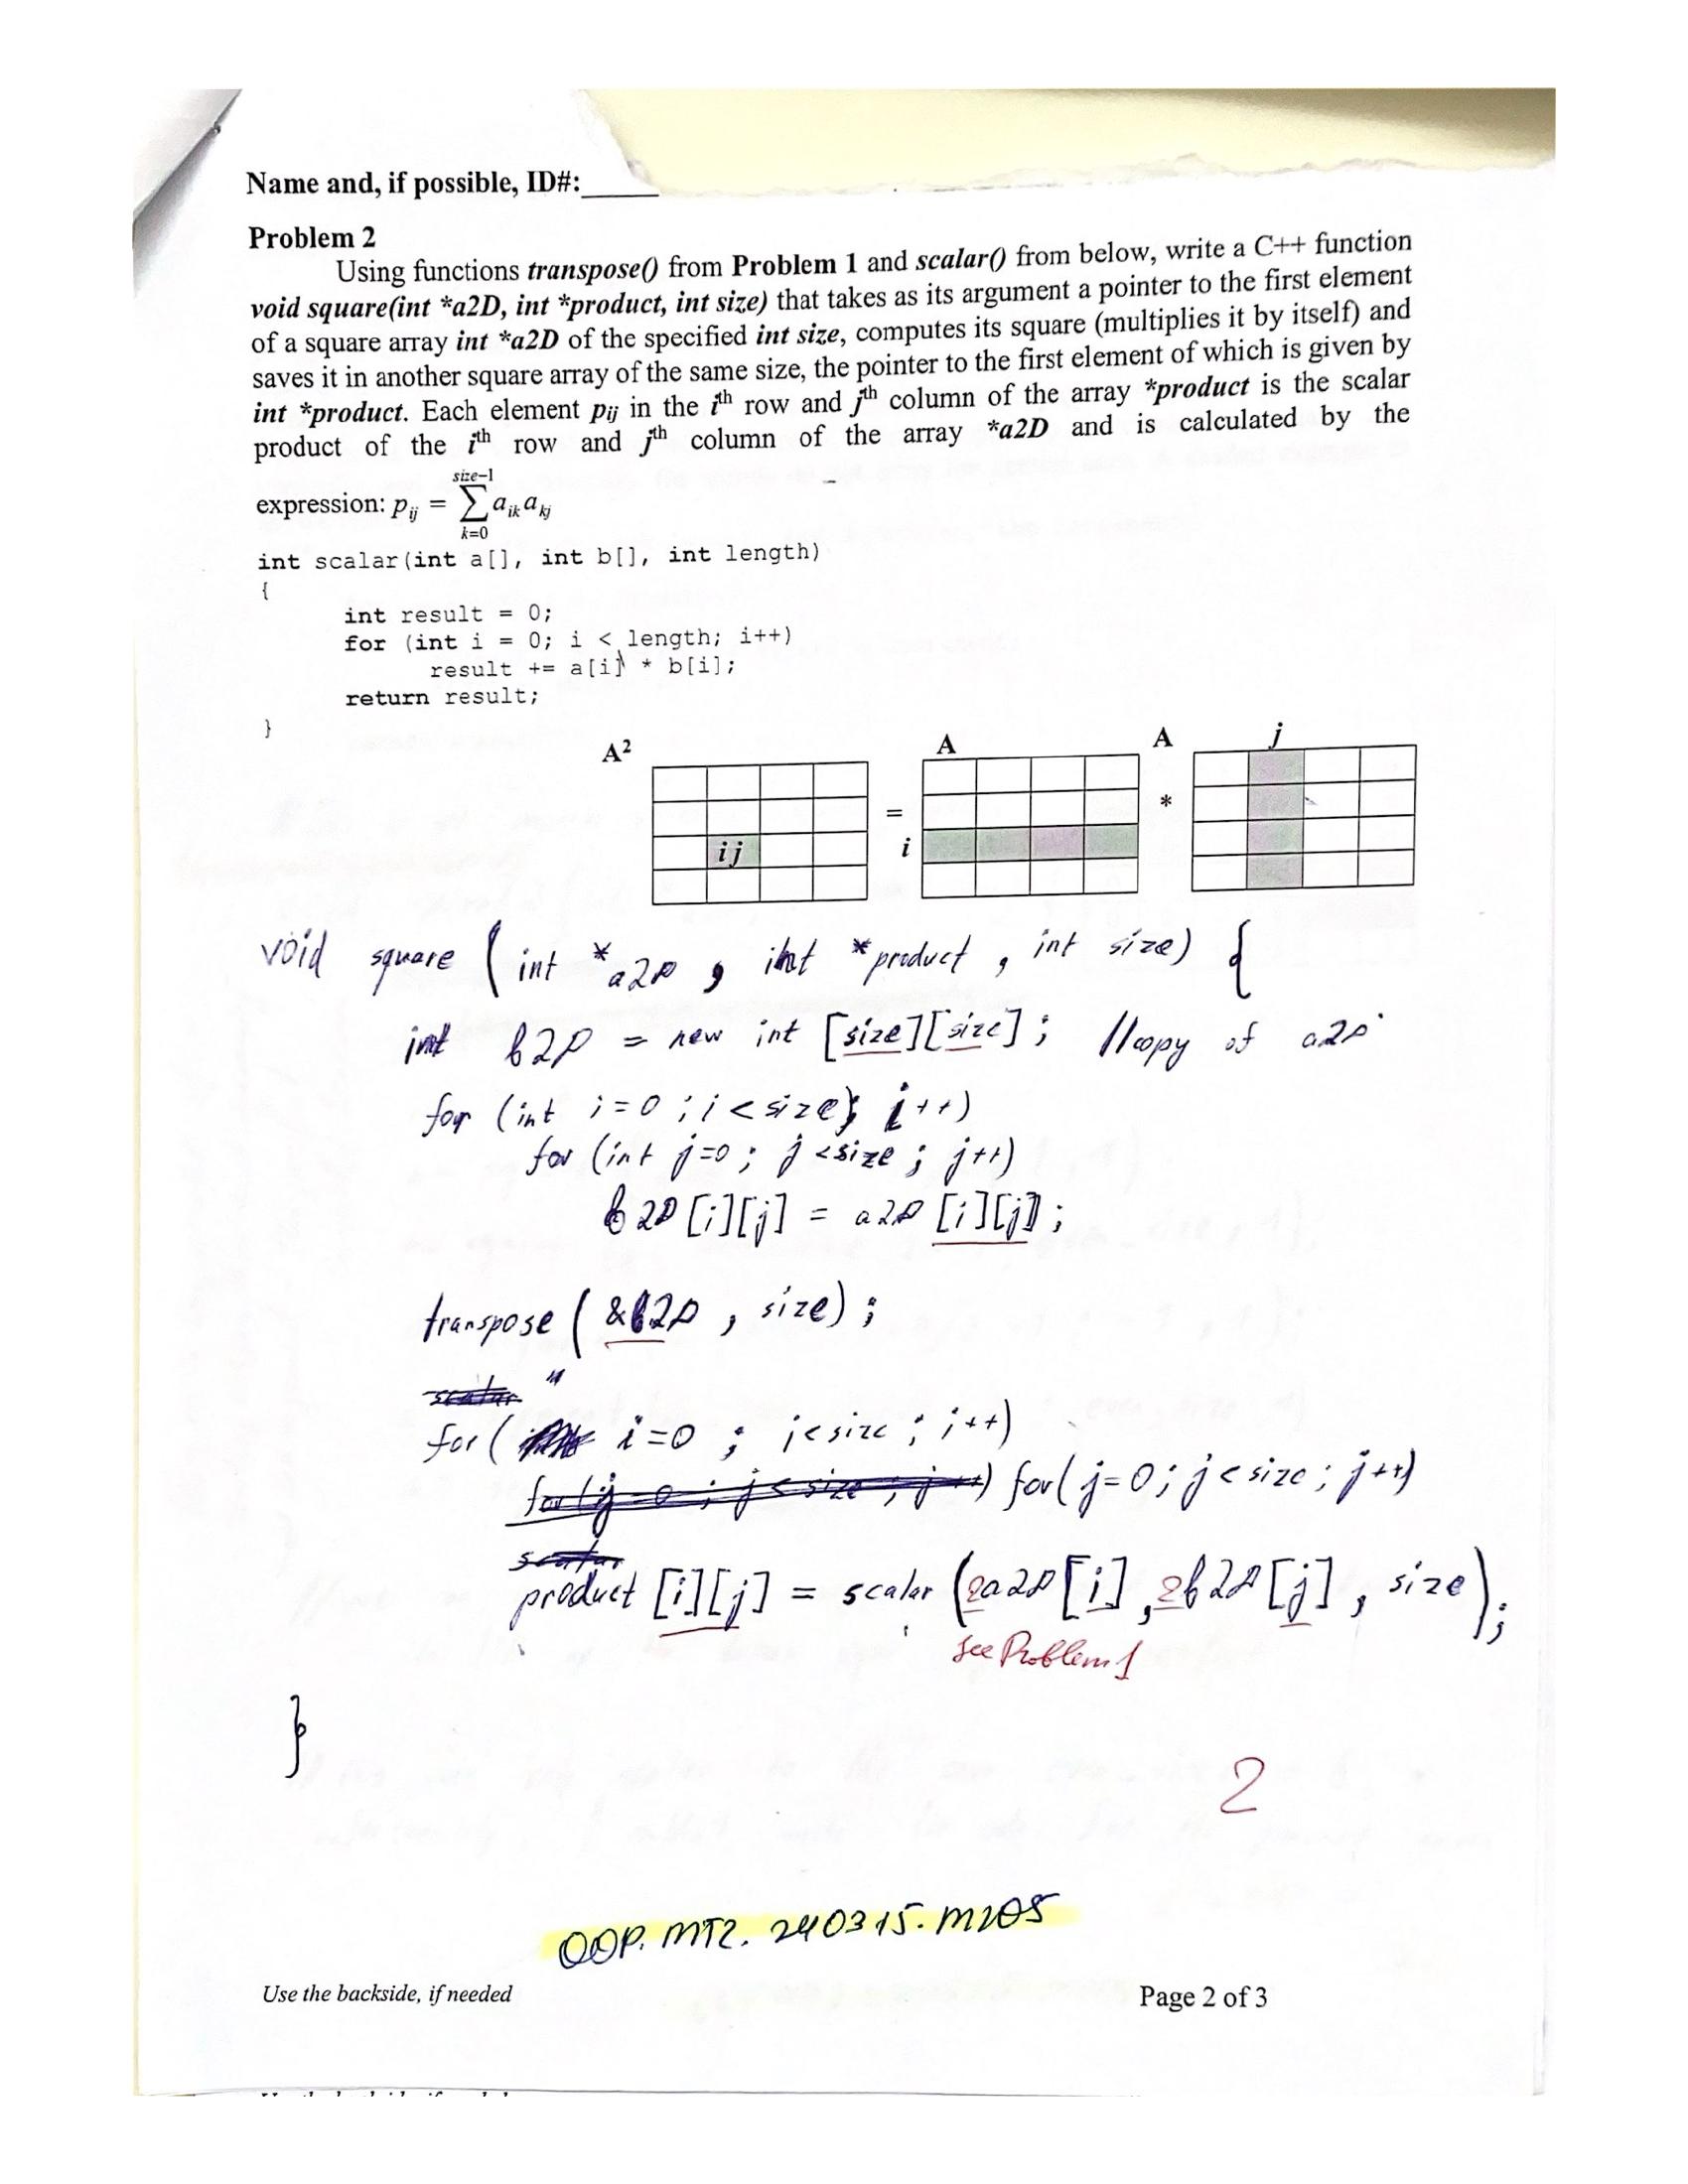 Name and, if possible, ID#:
Problem 2
Using functions transpose() from Problem 1 and scalar() from below, write a C++ function
void square(int *a2D, int *product, int size) that takes as its argument a pointer to the first element
of a square array int *a2D of the specified int size, computes its square (multiplies it by itself) and
saves it in another square array of the same size, the pointer to the first element of which is given by
int *product. Each element pij in the ith row and jth column of the array *product is the scalar
product of the ith row and jth column of the array *a2D and is calculated by the
size-1
expression: pij = ∑ aik akj
k=0
int scalar(int a[], int b[], int length)
{
int result = 0;
for (int i = 0; i < length; i++)
result += a[i] * b[i];
return result;
}
A² A A j
= *
ij i
void square (int *a2D, int *product, int size) {
int b2D = new int [size][size]; //copy of a2D
for (int i=0; i<size; i++)
for (int j=0; j<size; j++)
b2D[i][j] = a2D[i][j];
transpose(&b2D, size);
scalar
for( i=0; i<size; i++)
for(j=0; j<size; j++) for(j=0; j<size; j++)
scalar
product [i][j] = scalar (&a2D[i], &b2D[j], size);
see Problem 1
}
2
OOP. MT2. 240315. M205
Use the backside, if needed Page 2 of 3